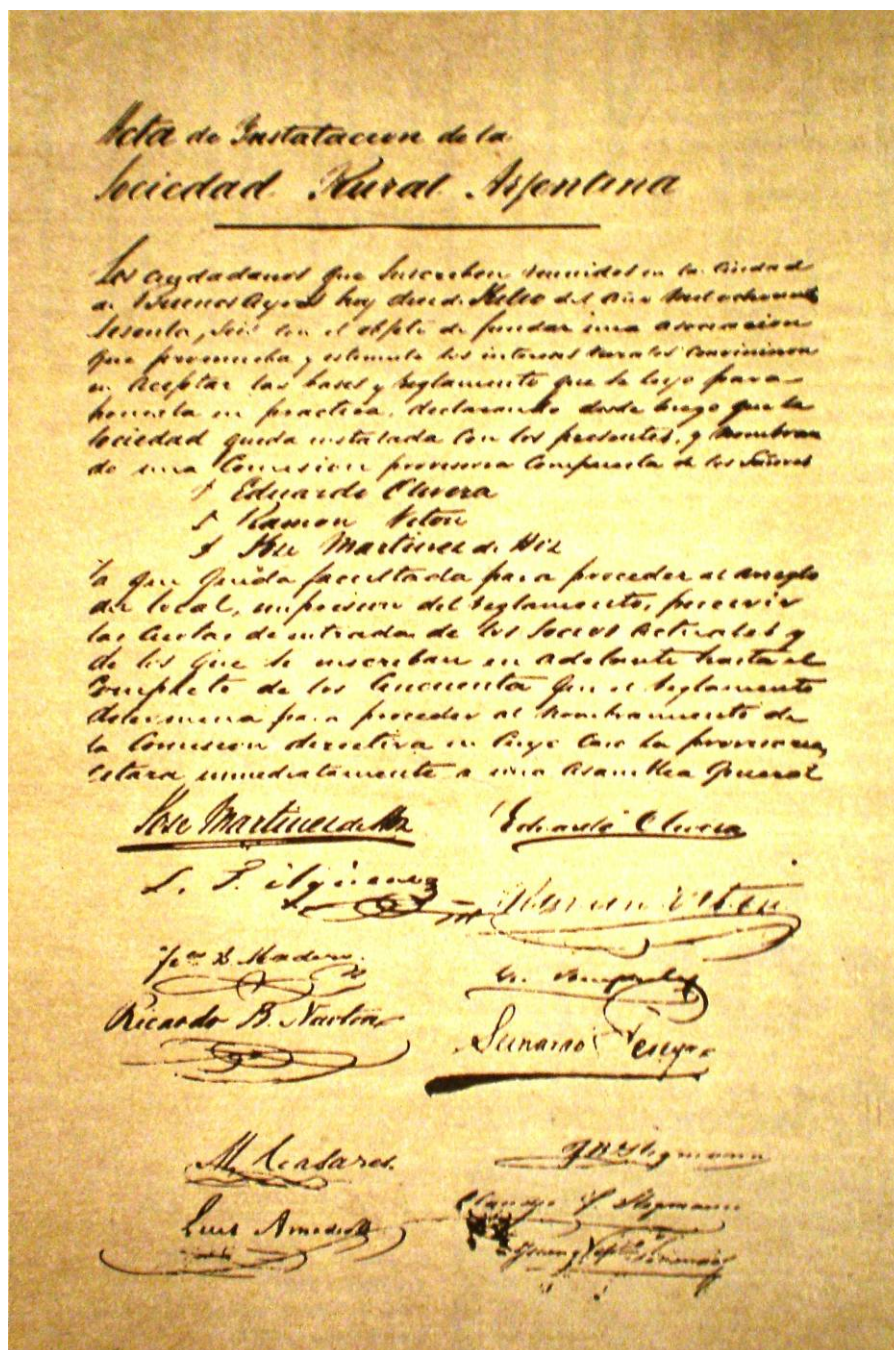 Acta de Instalacion de la
Sociedad Rural Argentina
Los ciudadanos que suscriben reunidos en la Ciudad
de Buenos Ayres hoy diez de Julio del año mil ochocientos
Sesenta y seis con el objeto de fundar una asociacion
que promueba y estimule los intereses rurales convinieron
en aceptar las bases y reglamento que se leyo para
ponerla en practica, declarando desde luego que la
Sociedad queda instalada con los presentes, y nombran
do una Comision provisoria compuesta de los Señores
Eduardo Olivera
Ramon Viton
Jose Martinez de Hoz
la que queda facultada para proceder al arreglo
del local, impresion del reglamento, percivir
las cuotas de entrada de los Socios actuales y
de los que se inscriban en adelante hasta el
Completo de los Cincuenta que el reglamento
determina para proceder al nombramiento de
la Comision directiva en cuyo caso la provisoria
citara inmediatamente a una Asamblea General
Jose Martinez de Hoz Eduardo Olivera
Ramon Viton
B. Madero
Ricardo B. Newton
Senarro
M. Casares
Stegmann
Luis Claudio F. Stegmann